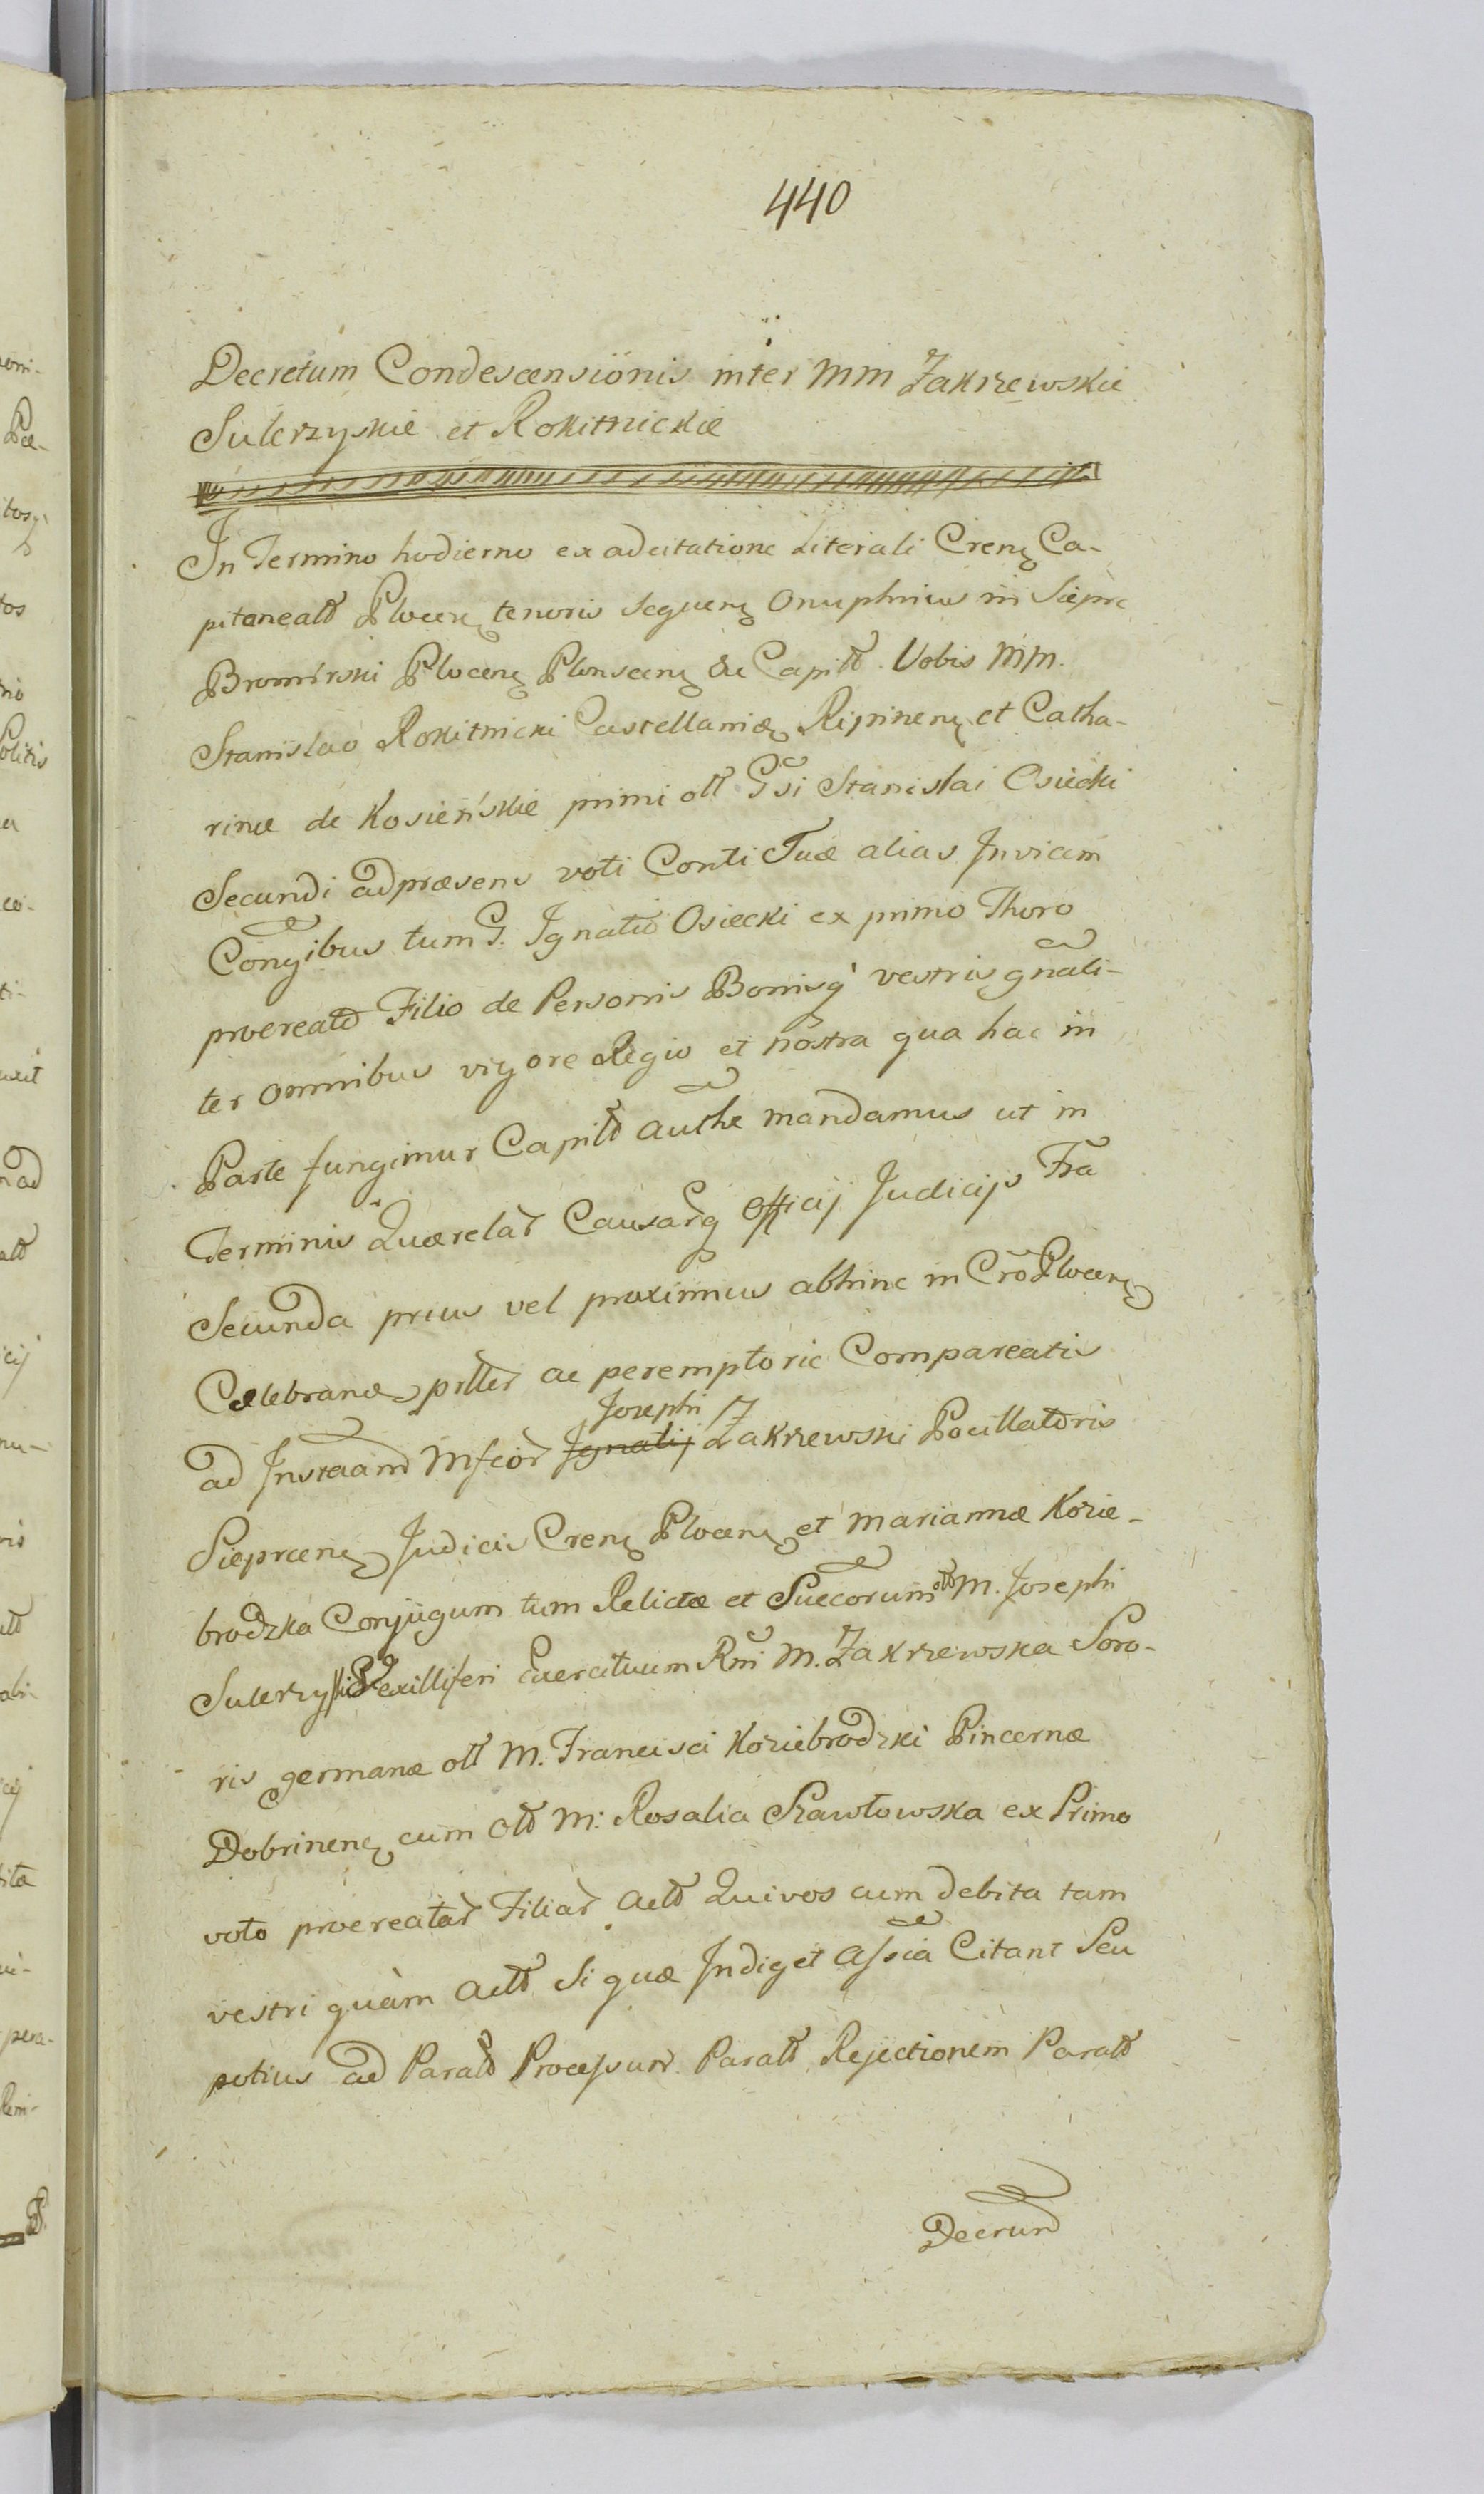 440
Decretum Condescensionis inter MM Zakrzewskie
Sulerzyskie et Rokitnickie
In Termino hodierno ex adcitatione Literali Cren. Ca-
pitaneatt Plocen. tenoris sequen. Onuphrius in Siepre
Bromirski Plocen. Plonscen. &c Capitt. Vobis MM.
Stanislao Rokitnicki Castellanidæ Ripinen. et Catha-
rinæ de Kosieńskie primi olt Gsi Stanislai Osiecki
Secundi adpræsens voti Conti Tuæ alias Invicem
Congibus tum G. Ignatio Osiecki ex primo Thoro
procreato Filio de Personis Bonisq vestris gnali-
ter omnibus vigore Regio et nostra qua hac in
Parte fungimur Capitt authe mandamus ut in
Terminis Quærelar Causarq Officij Judicijs Fra
Secunda prius vel proximius abhinc in Cro Plocen.
Celebrand pltter ac peremptorie Compareatis
Josephi
ad Instaam Mfcor Ignatij Zakrzewski Pocillatoris
Sieprcen. Judicis Cren. Plocen. et Mariannæ Kozie-
brodzka Conjugum tum Relictæ et Succorum olt M. Josephi
Sulerzyski Vexilliferi Exercituum Rni M. Zakrzewska Soro-
ris germanæ olt M. Francisci Koziebrodzki Pincernæ
Dobrinen. cum olt M. Rosalia Szawłowska ex Primo
voto procreatar Filiar Actt Qui vos cum debita tam
vestri quàm Actt Si quæ Indiget Assia Citant Seu
potius ad Paratt Processum Paratt Rejectionem Paratt
Decrum